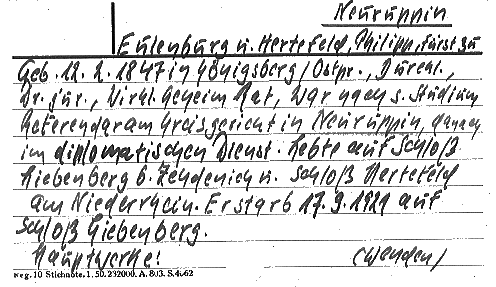 Neuruppin
Eulenburg u. Hertefeld, Philipp, Fürst zu
Geb. 12. 2. 1847 in Königsberg/Ostpr., Durchl.,
Dr. jur., Wirkl. Geheim Rat, war nach s. Studium
Referendar am Kreisgericht in Neuruppin, danach
im diplomatischen Dienst. Lebte auf Schloß
Liebenberg b. Zehdenick u. Schloß Hertefeld
am Niederrhein. Er starb 17. 9. 1921 auf
Schloß Liebenberg.
Hauptwerke: (wenden)
Reg. 10 Stichnote. 1. 50. 232000. A. 803. S. 4062